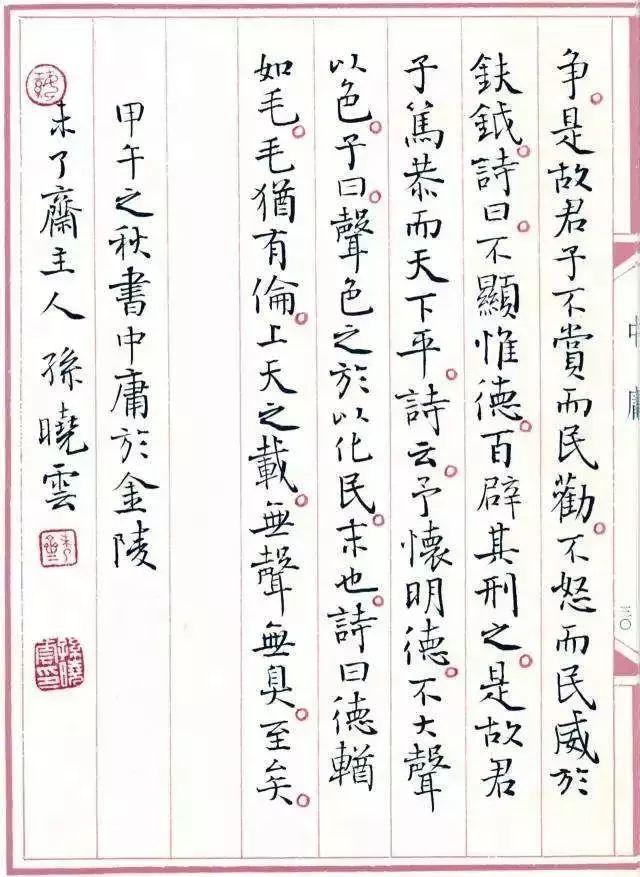 三〇
争。是故君子不賞而民勸。不怒而民威於
鈇鉞。詩曰。不顯惟德。百辟其刑之。是故君
子篤恭而天下平。詩云。予懷明德。不大聲
以色。子曰。聲色之於以化民。末也。詩曰德輶
如毛。毛猶有倫。上天之載。無聲無臭。至矣。
甲午之秋書中庸於金陵
未了齋主人孫曉雲